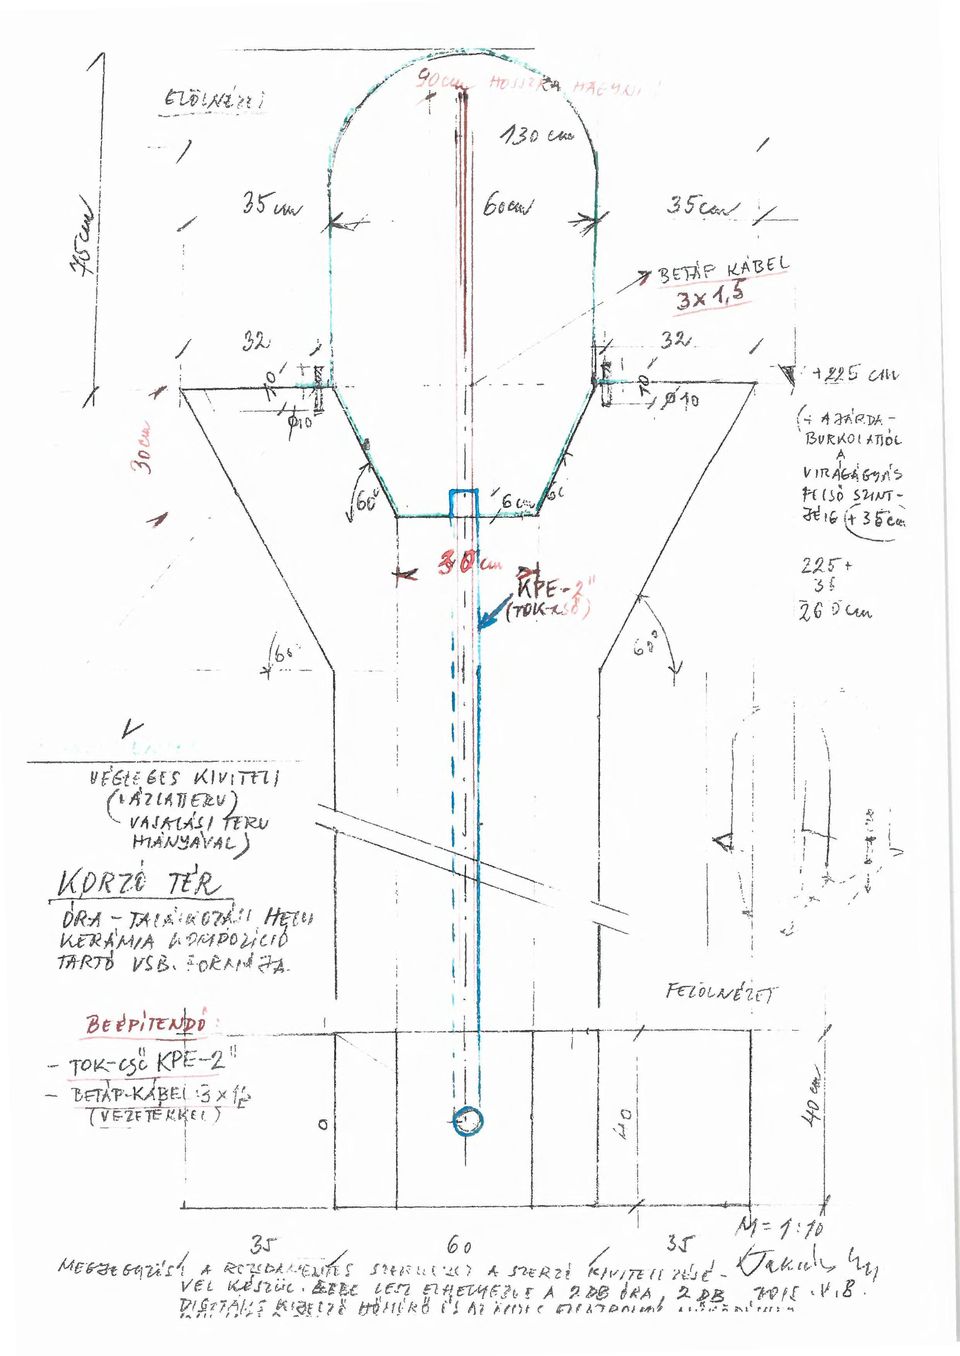 ELŐLNÉZET
90cm HOSSZRA HAGYNI!
130 cm
35 cm
60cm
35cm
75cm
BETÁP KÁBEL
3x1,5
32
32
10
Ø10
10
Ø10
+225 cm
(+ A JÁRDA-
BURKOLATTÓL
A
VIRÁGÁGYÁS
FELSŐ SZINT-
JÉIG +35cm
225+
35
260cm
30cm
60°
6cm
60
30cm
KPE-2"
(TOK-CSŐ)
60°
60°
VÉGLEGES KIVITELI
(VÁZLATTERV)
VASALÁSI TERV
HIÁNYÁVAL)
KORZÓ TÉR
ÓRA - TALÁLKOZÁSI HELY
KERÁMIA KOMPOZÍCIÓ
TARTÓ VSB. FORMÁJA.
FELÜLNÉZET
BEÉPÍTENDŐ:
- TOK-CSŐ KPE-2"
- BETÁP-KÁBEL 3x1,5
(VEZETÉKKEL)
40
40 cm
35
60
35
M=1:10
MEGJEGYZÉS: A ROZSDAMENTES A SZERZŐ KIVITELEZÉSÉ-
VEL KÉSZÜL. LESZ ELHELYEZVE A 2 DB ÓRA, 2 DB
2015.V.18.
DIGITÁLIS KIJELZŐ HŐMÉRŐ ÉS AZ